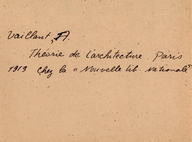 Vaillant, A.
Théorie de l'architecture. Paris
1919 chez la "Nouvelle lib Nationale"